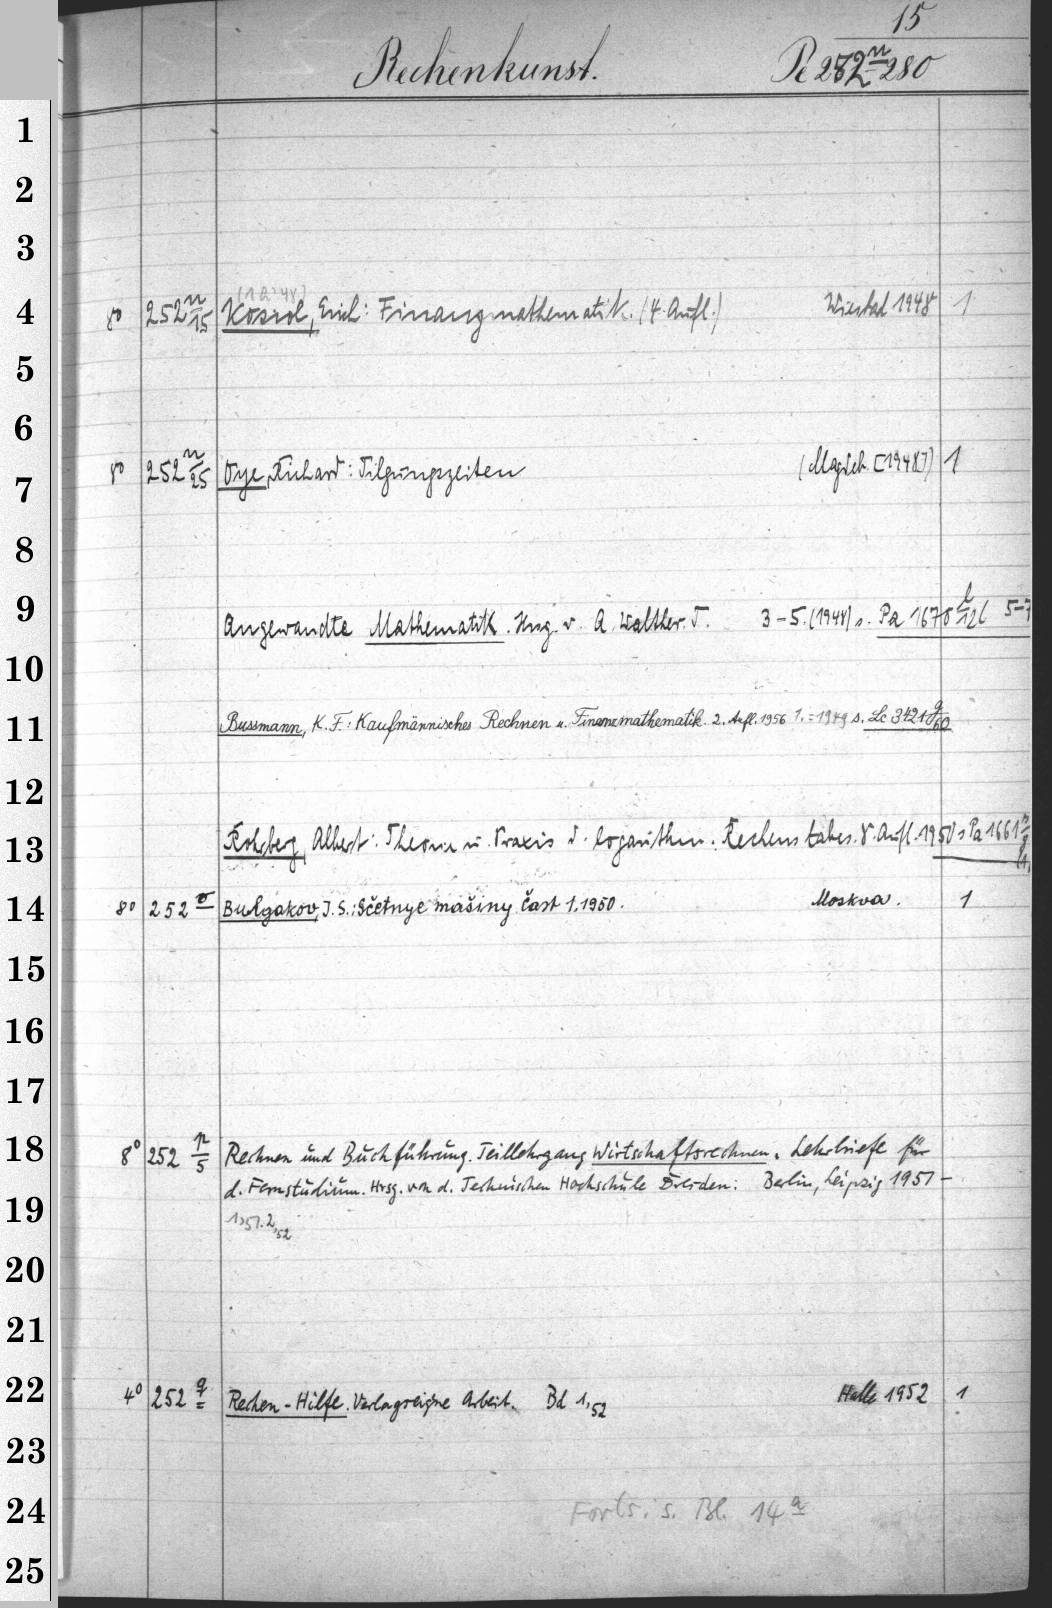 15
Rechenkunst. Pe 252 n-280
1
2
3
(1a:48)
4 8° 252 n/15 Kosiol, Erich: Finanzmathematik. (4. Aufl.) Wiesbad 1948 1
5
6
7 8° 252 n/25 Oye, Richard: Tilgungszeiten (Magdeb. [1948]) 1
8
9 Angewandte Mathematik. Hrsg. v. A. Walther. T. 3-5. (1948) s. Pa 1676 l/126 5-7
10
11 Bussmann, K. F.: Kaufmännisches Rechnen u. Finanzmathematik. 2. Aufl. 1956 1.=1949 s. Lc 3421 g/60
12
13 Rohrberg, Albert: Theorie u. Praxis d. logarithm. Rechenstabes. 8. Aufl. 1950 s Pa 1661
14 8° 252 o Bulgakov, I. S.: Sčetnye mašiny čast 1, 1950. Moskva. 1
15
16
17
18 8° 252 p/5 Rechnen und Buchführung. Teillehrgang Wirtschaftsrechnen. Lehrbriefe für
d. Fernstudium. Hrsg. von d. Technischen Hochschule Dresden: Berlin, Leipzig 1951-
19 1,51. 2,52
20
21
22 4° 252 q Rechen-Hilfe. Verlagseigne Arbeit. Bd 1,52 Halle 1952 1
23
24 Forts. s. Bl. 14 a
25